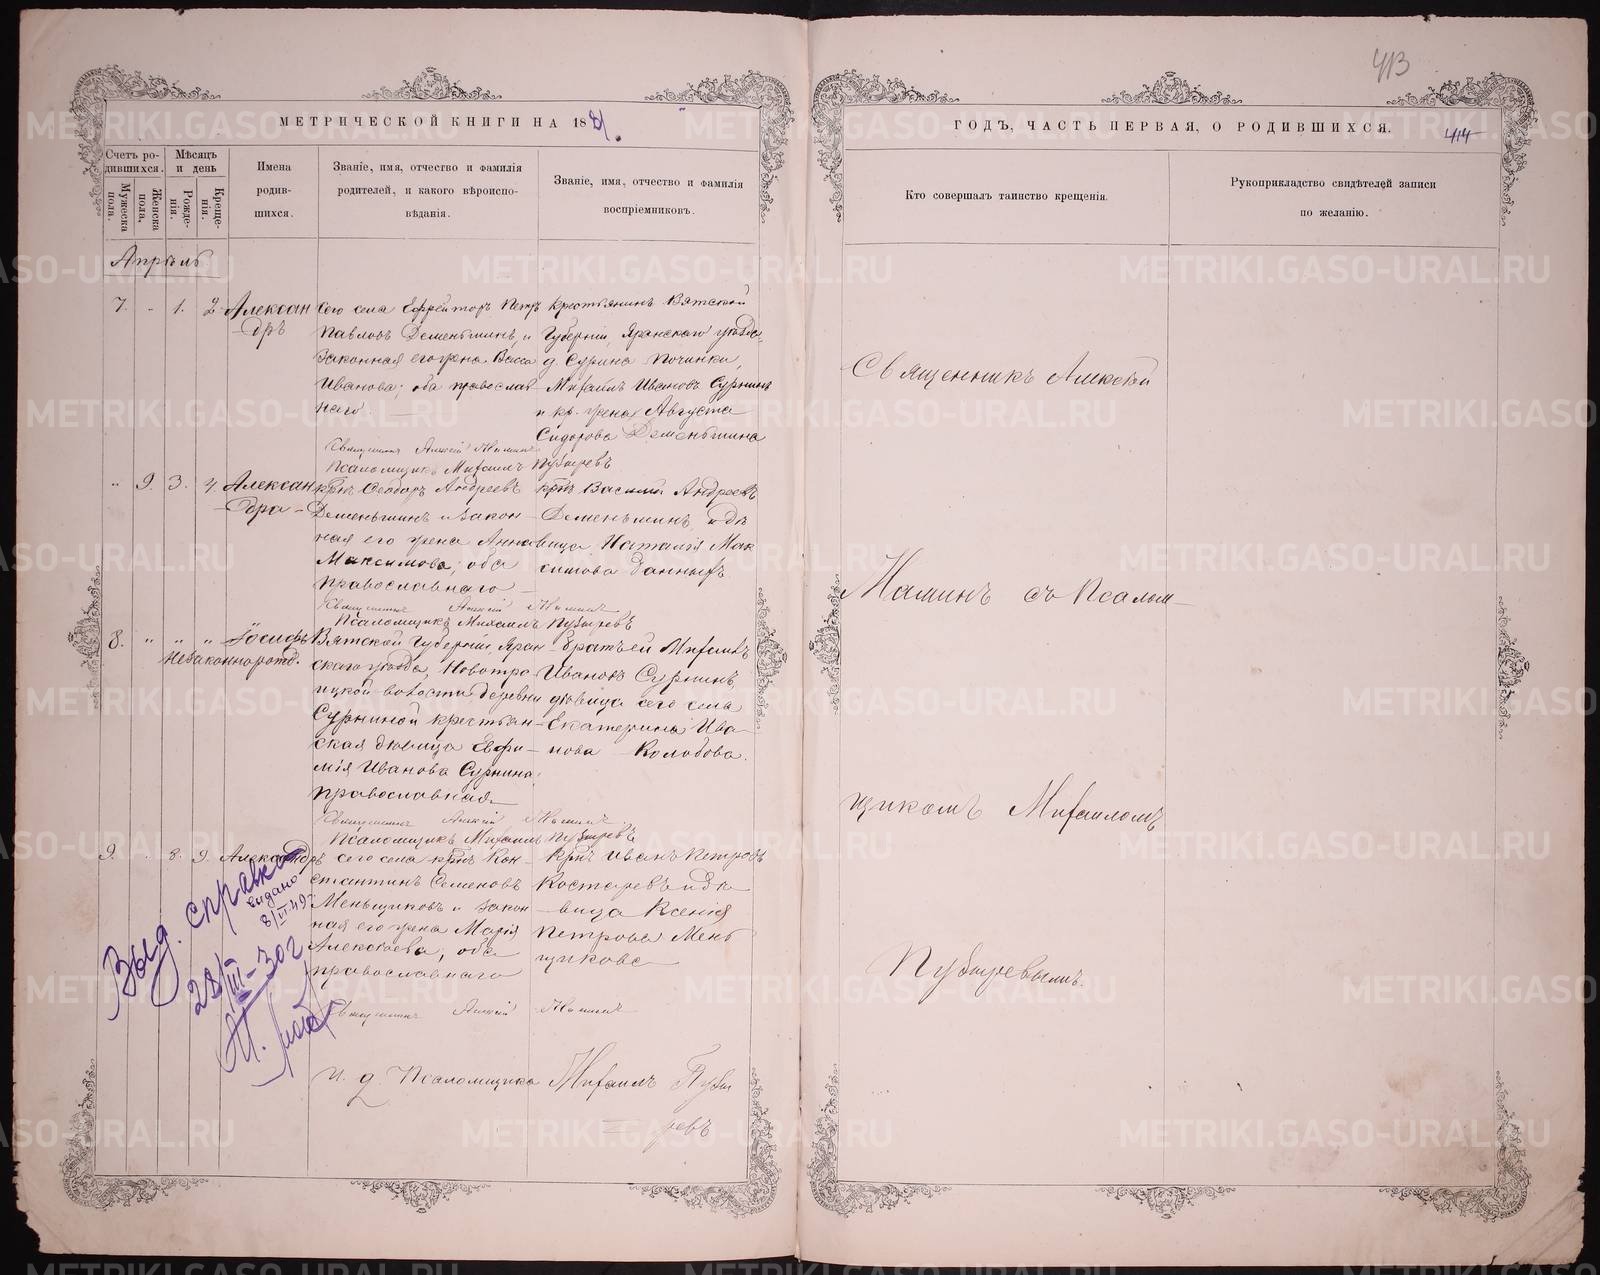 413
МЕТРИЧЕСКОЙ КНИГИ НА 1881.
ГОДЪ, ЧАСТЬ ПЕРВАЯ, О РОДИВШИХСЯ.
414
Счетъ ро-
дившихся.
Мужеска
пола.
Женска
пола.
Мѣсяцъ
и день
Рожде-
нія.
Креще-
нія.
Имена
родив-
шихся.
Званіе, имя, отчество и фамилія
родителей, и какого вѣроиспо-
вѣданія.
Званіе, имя, отчество и фамилія
воспріемниковъ.
Кто совершалъ таинство крещенія.
Рукоприкладство свидѣтелей записи
по желанію.
Апрѣль
7. " 1. 2. Алексан
дръ
Сего села Ефрейторъ Петръ
Павловъ Деменьшинъ, и
законная его жена Васса
Иванова; оба православ
наго.
Крестьянинъ Вятской
Губерніи, Яранскаго уѣзда,
д. Сурина Починка,
Михаилъ Ивановъ Сурнинъ
и кр. жена Августа
Сидорова Деменьшина
Священникъ Алексій Маминъ
Псаломщикъ Михаилъ Пузыревъ
" 9. 3. 4. Алексан
дра
крнъ Ѳеодоръ Андреевъ
Деменьшинъ и закон-
ная его жена Анна
Максимова; оба
православнаго
крнъ Василій Андреевъ
Деменьшинъ и дѣ
вица Наталія Мак
симова Данныхъ.
Священникъ Алексій Маминъ
Псаломщикъ Михаилъ Пузыревъ
8. " " " Іосифъ
Незаконнорожд.
Вятской Губерніи, Яран-
скаго уѣзда, Новотро
ицкой волости деревни
Сурниной крестьян-
ская дѣвица Евфи-
мія Иванова Сурнина;
православная
братъ ей Михаилъ
Ивановъ Сурнинъ,
дѣвица сего села
Екатерина Ива
нова Колобова.
Священникъ Алексій Маминъ.
Псаломщикъ Михаилъ Пузыревъ
9. " 8. 9. Александръ
сего села крнъ Кон-
стантинъ Семеновъ
Меньщиковъ и закон
ная его жена Марія
Алексѣева; оба
православнаго
крнъ Иванъ Петровъ
Костаревъ и дѣ
вица Ксенія
Петрова Мень
щикова
Священникъ Алексій Маминъ
и. д. Псаломщика Михаилъ Пузы
ревъ
Выд. справка
28/III-30г
выдано
8/VI 49г
Священникъ Алексій
Маминъ съ Псалом-
щикомъ Михаиломъ
Пузыревымъ.
METRIKI.GASO-URAL.RU